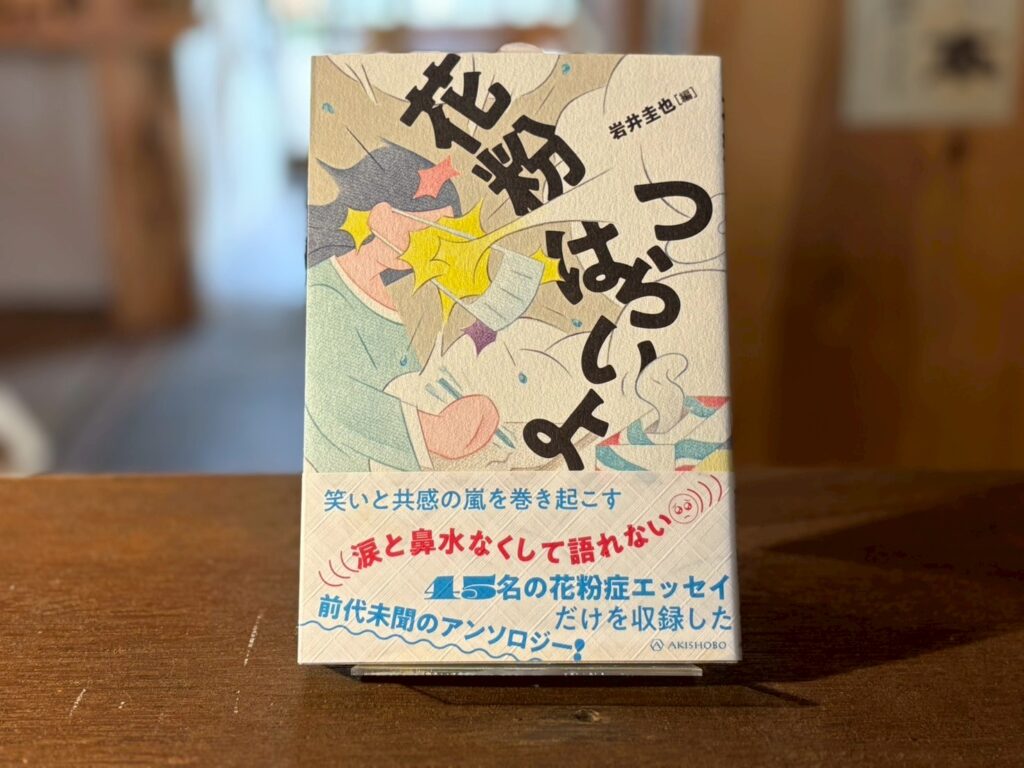 花粉はつらいよ
岩井圭也[編]
笑いと共感の嵐を巻き起こす
涙と鼻水なくして語れない
45名の花粉症エッセイ
だけを収録した
前代未聞のアンソロジー!
AKISHOBO